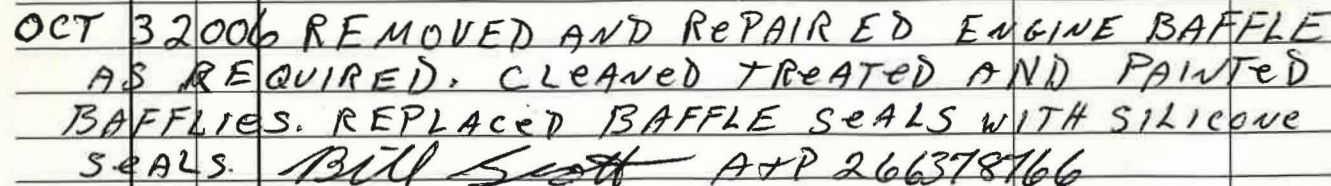 OCT 3 2006 REMOVED AND RePAIRED ENGINE BAFFLE
AS REQUIRED. CLeANeD TReATeD AND PAINTeD
BAFFLIeS. REPLACeD BAFFLE SeALS WITH SILICONe
SeALS. Bill Scott A+P 266378766